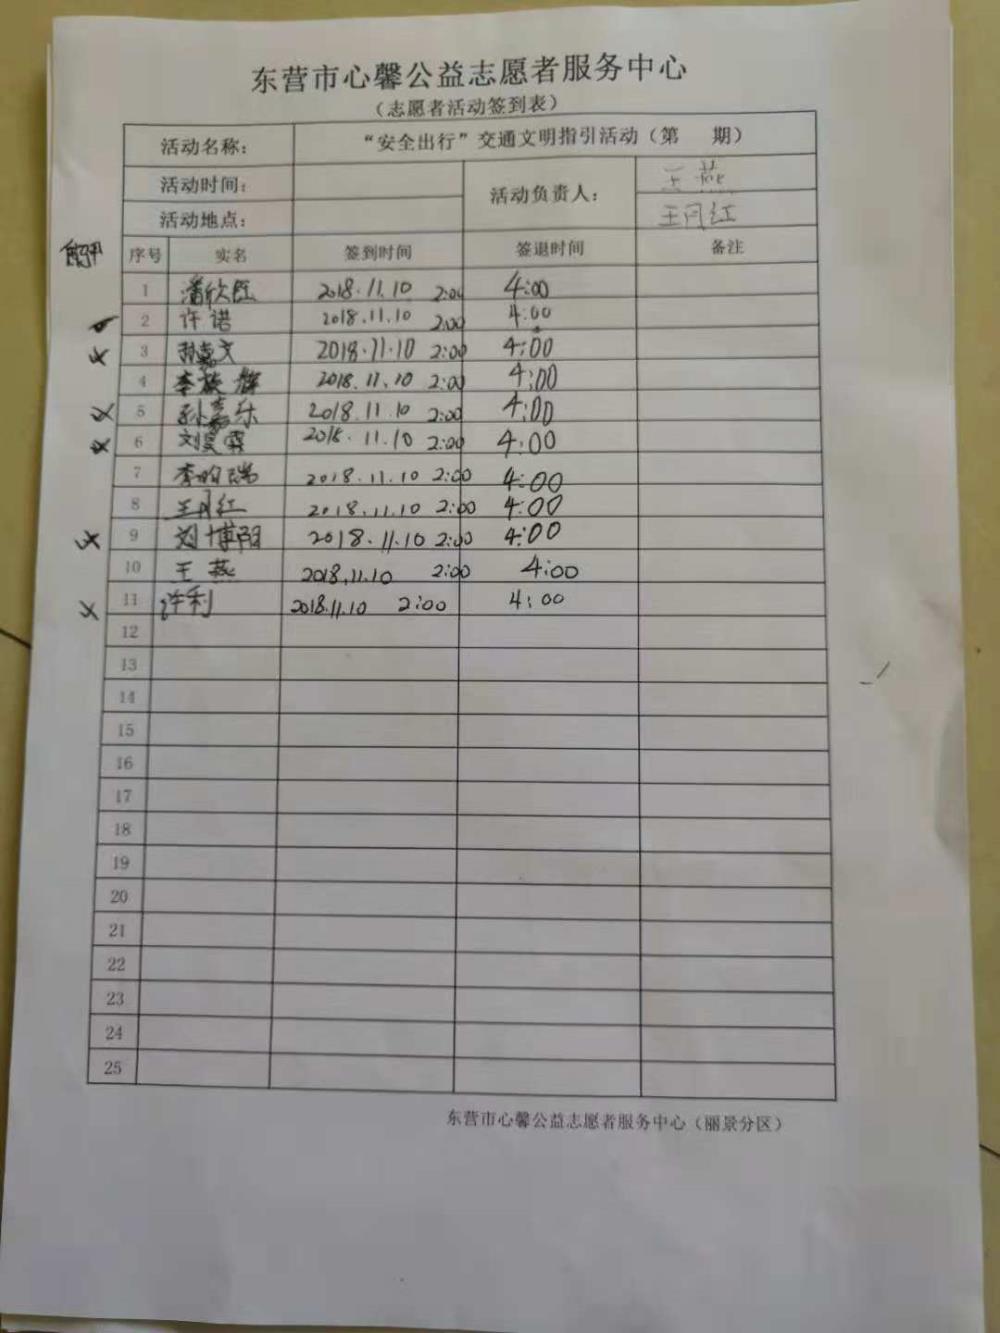 东营市心馨公益志愿者服务中心
（志愿者活动签到表）
活动名称： “安全出行”交通文明指引活动（第 期）
活动时间： 活动负责人： 王燕
活动地点： 王月红
序号 实名 签到时间 签退时间 备注
1 潘欣 2018.11.10 2:00 4:00
2 许诺 2018.11.10 2:00 4:00
3 孙嘉文 2018.11.10 2:00 4:00
4 李 2018.11.10 2:00 4:00
5 孙嘉乐 2018.11.10 2:00 4:00
6 刘昊霖 2018.11.10 2:00 4:00
7 李昀瑞 2018.11.10 2:00 4:00
8 王月红 2018.11.10 2:00 4:00
9 刘博阳 2018.11.10 2:00 4:00
10 王燕 2018.11.10 2:00 4:00
11 许利 2018.11.10 2:00 4:00
12
13
14
15
16
17
18
19
20
21
22
23
24
25
东营市心馨公益志愿者服务中心（丽景分区）